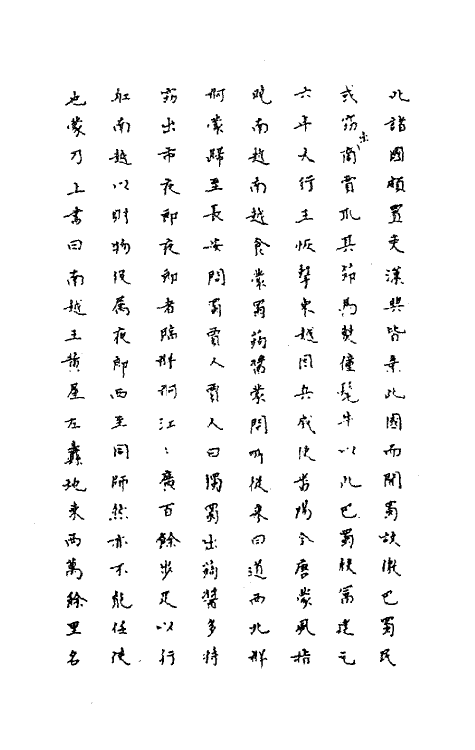 此諸國頗置吏漢興皆棄此國而開蜀故徼巴蜀民
或竊出商賈取其筰馬僰僮髦牛以此巴蜀殷富建元
六年大行王恢擊東越因兵威使番陽令唐蒙風指
曉南越南越食蒙蜀蒟醬蒙問所從來曰道西北牂
牁蒙歸至長安問蜀賈人賈人曰獨蜀出蒟醬多持
竊出市夜郎夜郎者臨牂牁江江廣百餘步足以行
船南越以財物役屬夜郎西至同師然亦不能任使
也蒙乃上書曰南越王黃屋左纛地東西萬餘里名